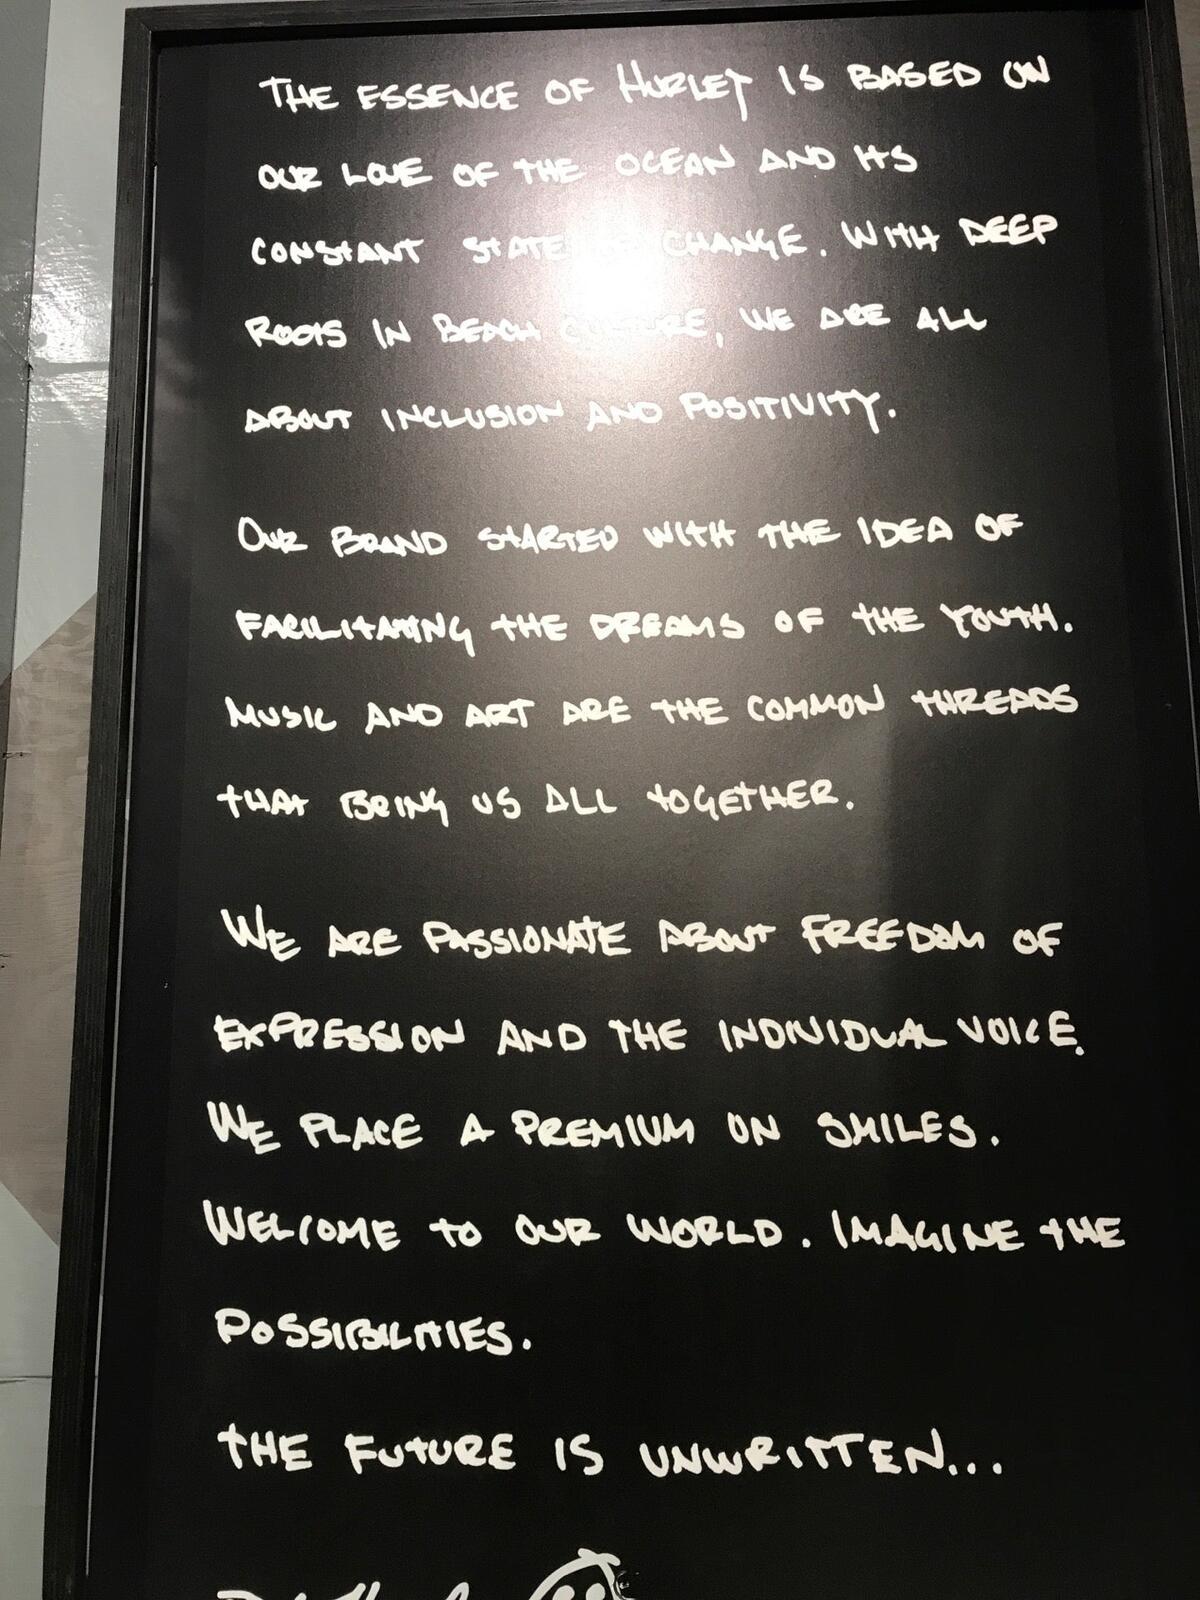 THE ESSENCE OF HURLEY IS BASED ON
OUR LOVE OF THE OCEAN AND ITS
CONSTANT STATE OF CHANGE. WITH DEEP
ROOTS IN BEACH CULTURE, WE ARE ALL
ABOUT INCLUSION AND POSITIVITY.
OUR BRAND STARTED WITH THE IDEA OF
FACILITATING THE DREAMS OF THE YOUTH.
MUSIC AND ART ARE THE COMMON THREADS
THAT BRING US ALL TOGETHER.
WE ARE PASSIONATE ABOUT FREEDOM OF
EXPRESSION AND THE INDIVIDUAL VOICE.
WE PLACE A PREMIUM ON SMILES.
WELCOME TO OUR WORLD. IMAGINE THE
POSSIBILITIES.
THE FUTURE IS UNWRITTEN...